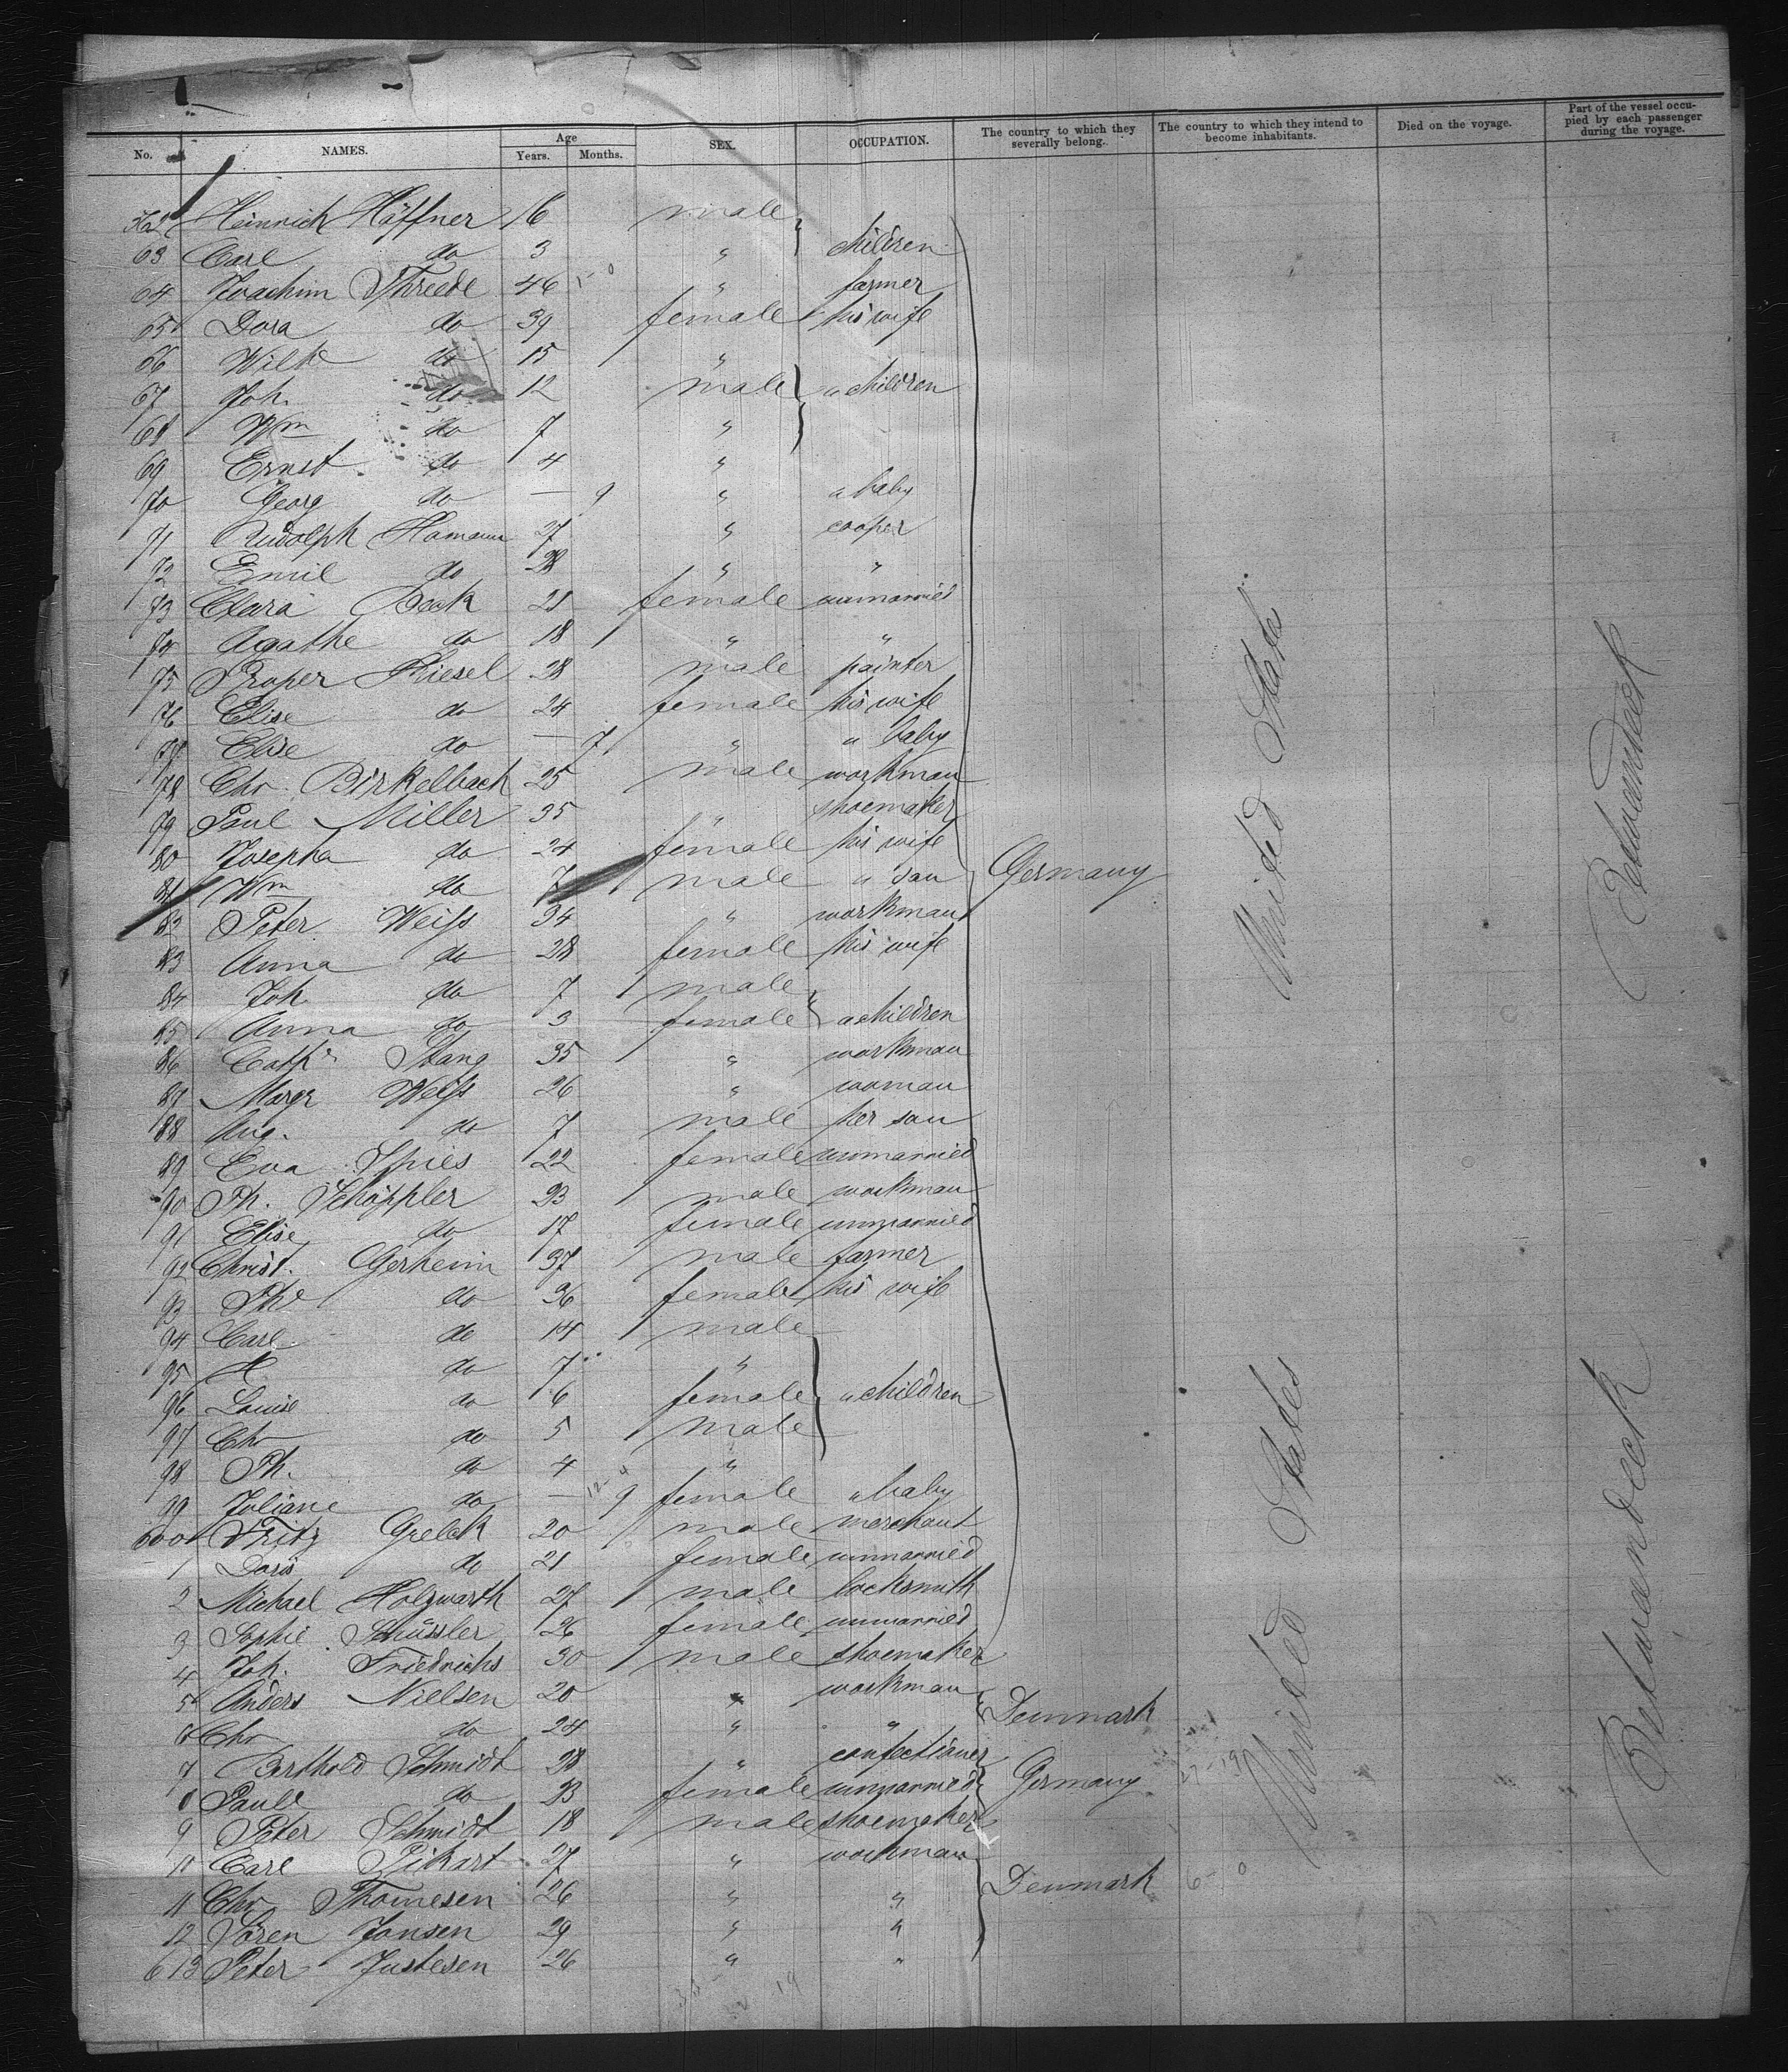 No. NAMES. Age Years. Months. SEX. OCCUPATION. The country to which they severally belong. The country to which they intend to become inhabitants. Died on the voyage. Part of the vessel occupied by each passenger during the voyage.
562 Heinrich Häffner 6 male
63 Carl do 3 " } children
64 Joachim Threede 46 " farmer
65 Dora do 39 female his wife
66 Wilh do 15 "
67 Joh. do 12 male } " children
68 Wm do 7 "
69 Ernst do 4 "
70 Georg do — 9 " a baby
71 Rudolph Hamann 27 " cooper
72 Emil do 28 " "
73 Clara Beck 21 female unmarried
74 Agathe do 18 " "
75 Proper Kiesel 28 male painter
76 Elise do 24 female his wife
77 Elise do — 7 " a baby
78 Chr. Birkelbach 25 male workman
79 Paul Miller 35 " shoemaker
80 Josepha do 24 female his wife
81 Wm do 7 male a son Germany
82 Peter Weiss 34 " workman
83 Anna do 28 female his wife
84 Joh do 7 male
85 Anna do 3 female } a children
86 Cath. Stang 35 " workman
87 Margr Weiss 26 " woman
88 Aug. do 7 male her son
89 Eva Spies 22 female unmarried
90 Ph. Schöppler 23 male workman
91 Elise do 17 female unmarried
92 Christ. Gerheim 37 male farmer
93 Phe do 36 female his wife
94 Carl do 14 male
95 H do 7 "
96 Louise do 6 female } a children
97 Chr do 5 male
98 Ph. do 4 "
99 Juliane do — 9 female a baby
600 Fritz Grelck 20 male merchant
1 Doris do 21 female unmarried
2 Michael Holzwarth 27 male locksmith
3 Sophie Schüssler 26 female unmarried
4 Joh. Friedrichs 30 male shoemaker
5 Anders Nielsen 20 " workman
6 Chr do 24 " " Denmark
7 Berthold Schmidt 28 " confectioner
8 Paule do 23 female unmarried Germany
9 Peter Schmidt 18 male shoemaker
10 Carl Pikart 27 " workman
11 Chr Thomesen 26 " " Denmark
12 Sören Jansen 29 " "
613 Peter Justesen 26 " "
United States
United States
Betweendeck
Betweendeck